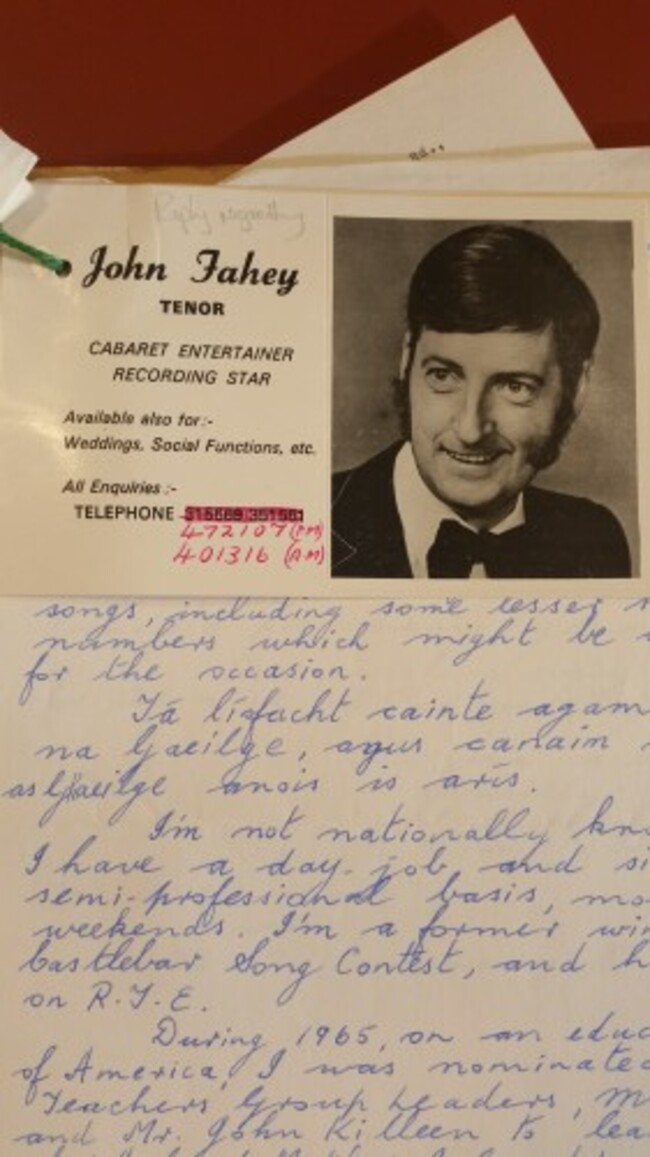 Reply regretting
John Fahey
TENOR
CABARET ENTERTAINER
RECORDING STAR
Available also for:-
Weddings, Social Functions, etc.
All Enquiries :-
TELEPHONE 315569 351561
472107 (PM)
401316 (AM)
songs, including some lesser
numbers which might be
for the occasion.
Tá líofacht cainte agam
na Gaeilge, agus canaim
as Gaeilge anois is arís.
I'm not nationally kn
I have a day-job and si
semi-professional basis, mo
weekends. I'm a former win
Castlebar Song Contest, and h
on R.T.E.
During 1965, on an educ
of America, I was nominated
Teachers Group Leaders, M
and Mr. John Killeen to lea